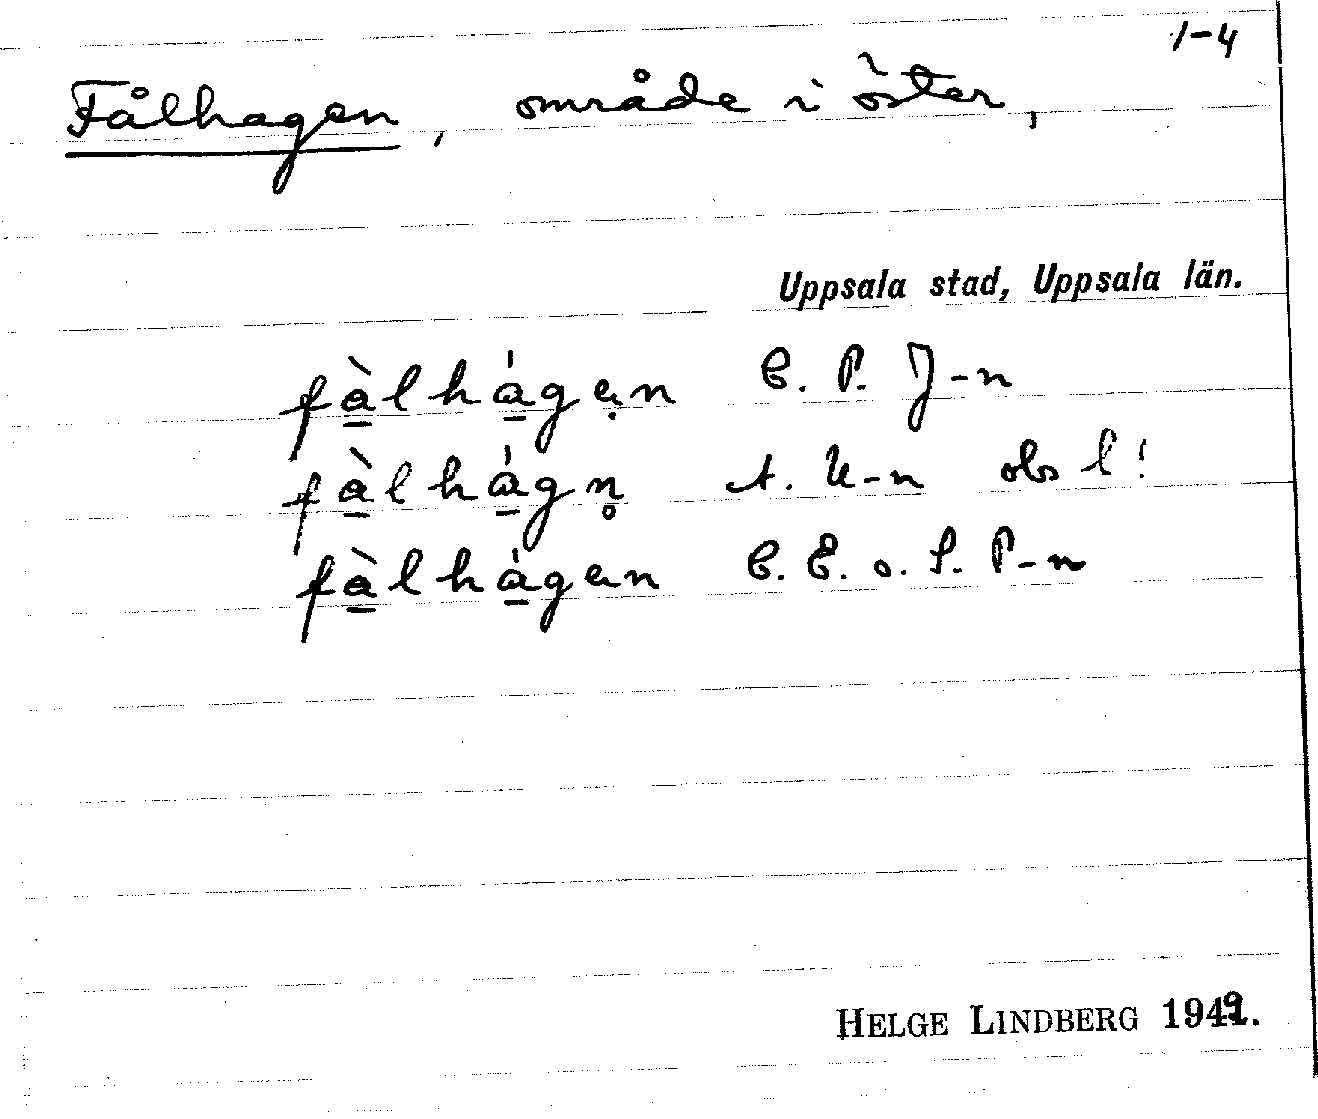 1-4
Fålhagen, område i öster,
Uppsala stad, Uppsala län.
fà̱lhá̱gẹn C. P. J-n
fà̱lhá̱gn̥ A. U-n obs l!
fà̱lhá̱gen C. E. o. S. P-n
HELGE LINDBERG 1949.